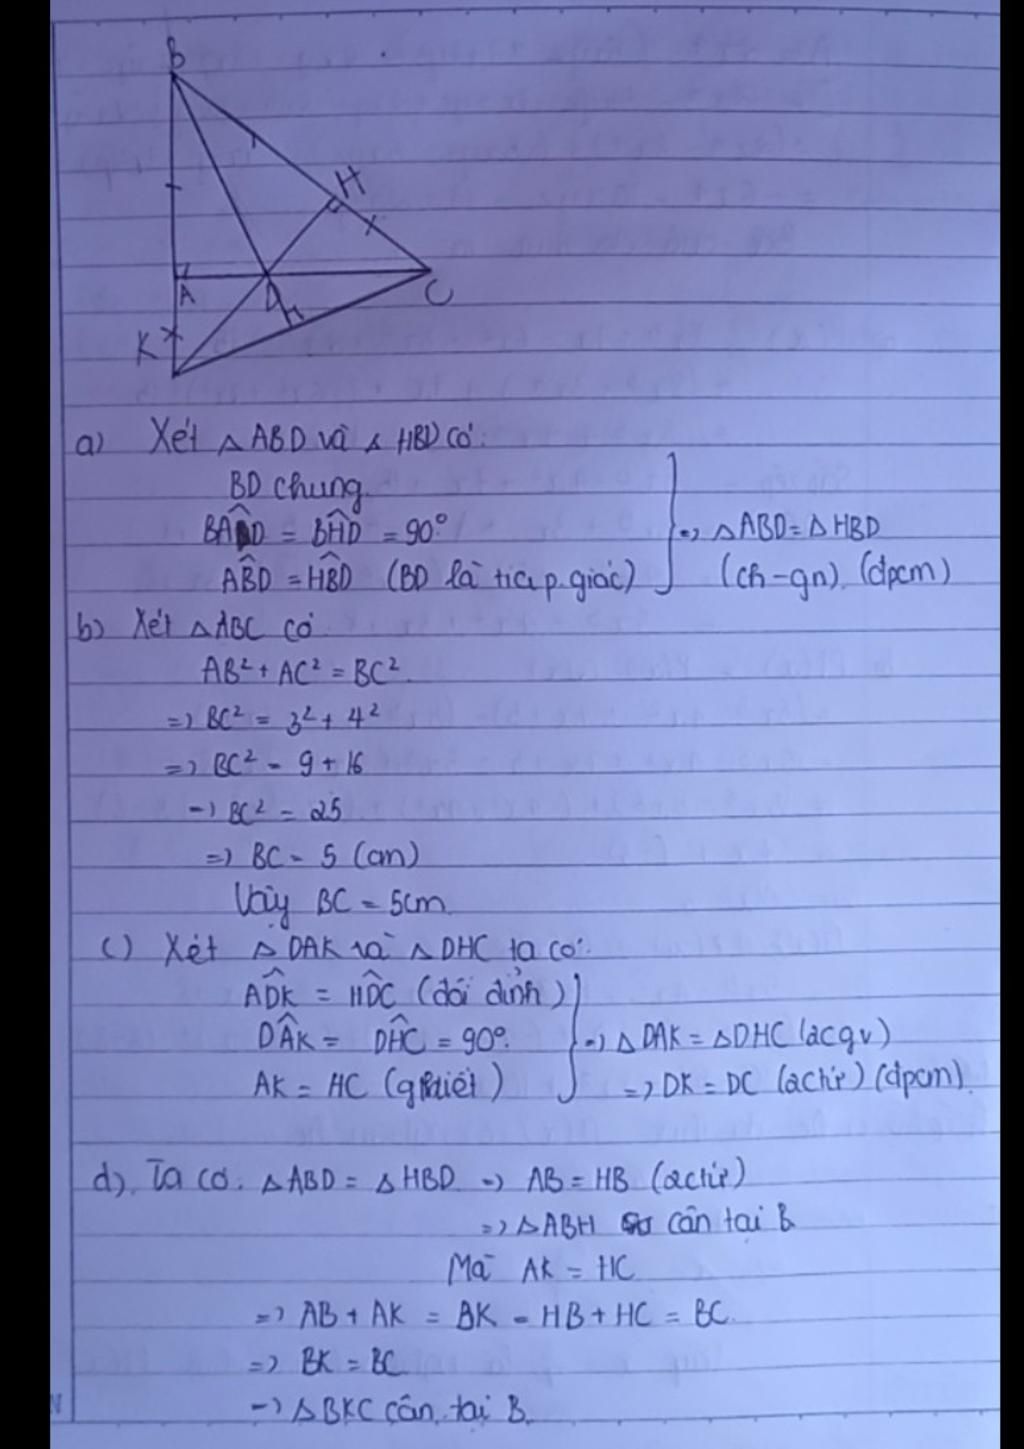 B
H
A
D
C
K
H
a) Xét △ABD và △HBD có:
BD chung.
BAD = BHD = 90°
ABD = HBD (BD là tia p.giác)
=> △ABD = △HBD
(ch-gn). (đpcm)
b) Xét △ABC có
AB² + AC² = BC².
=> BC² = 3² + 4²
=> BC² = 9 + 16
=> BC² = 25
=> BC = 5 (cm)
Vậy BC = 5cm.
c) Xét △DAK và △DHC ta có:
ADK = HDC (đối đỉnh)
DAK = DHC = 90°.
AK = HC (gthiết)
=> △DAK = △DHC (2cgv)
=> DK = DC (2ctứ) (đpcm).
d). Ta có: △ABD = △HBD => AB = HB (2ctứ)
=> △ABH cân tại B
Mà AK = HC
=> AB + AK = BK = HB + HC = BC.
=> BK = BC
=> △BKC cân tại B.